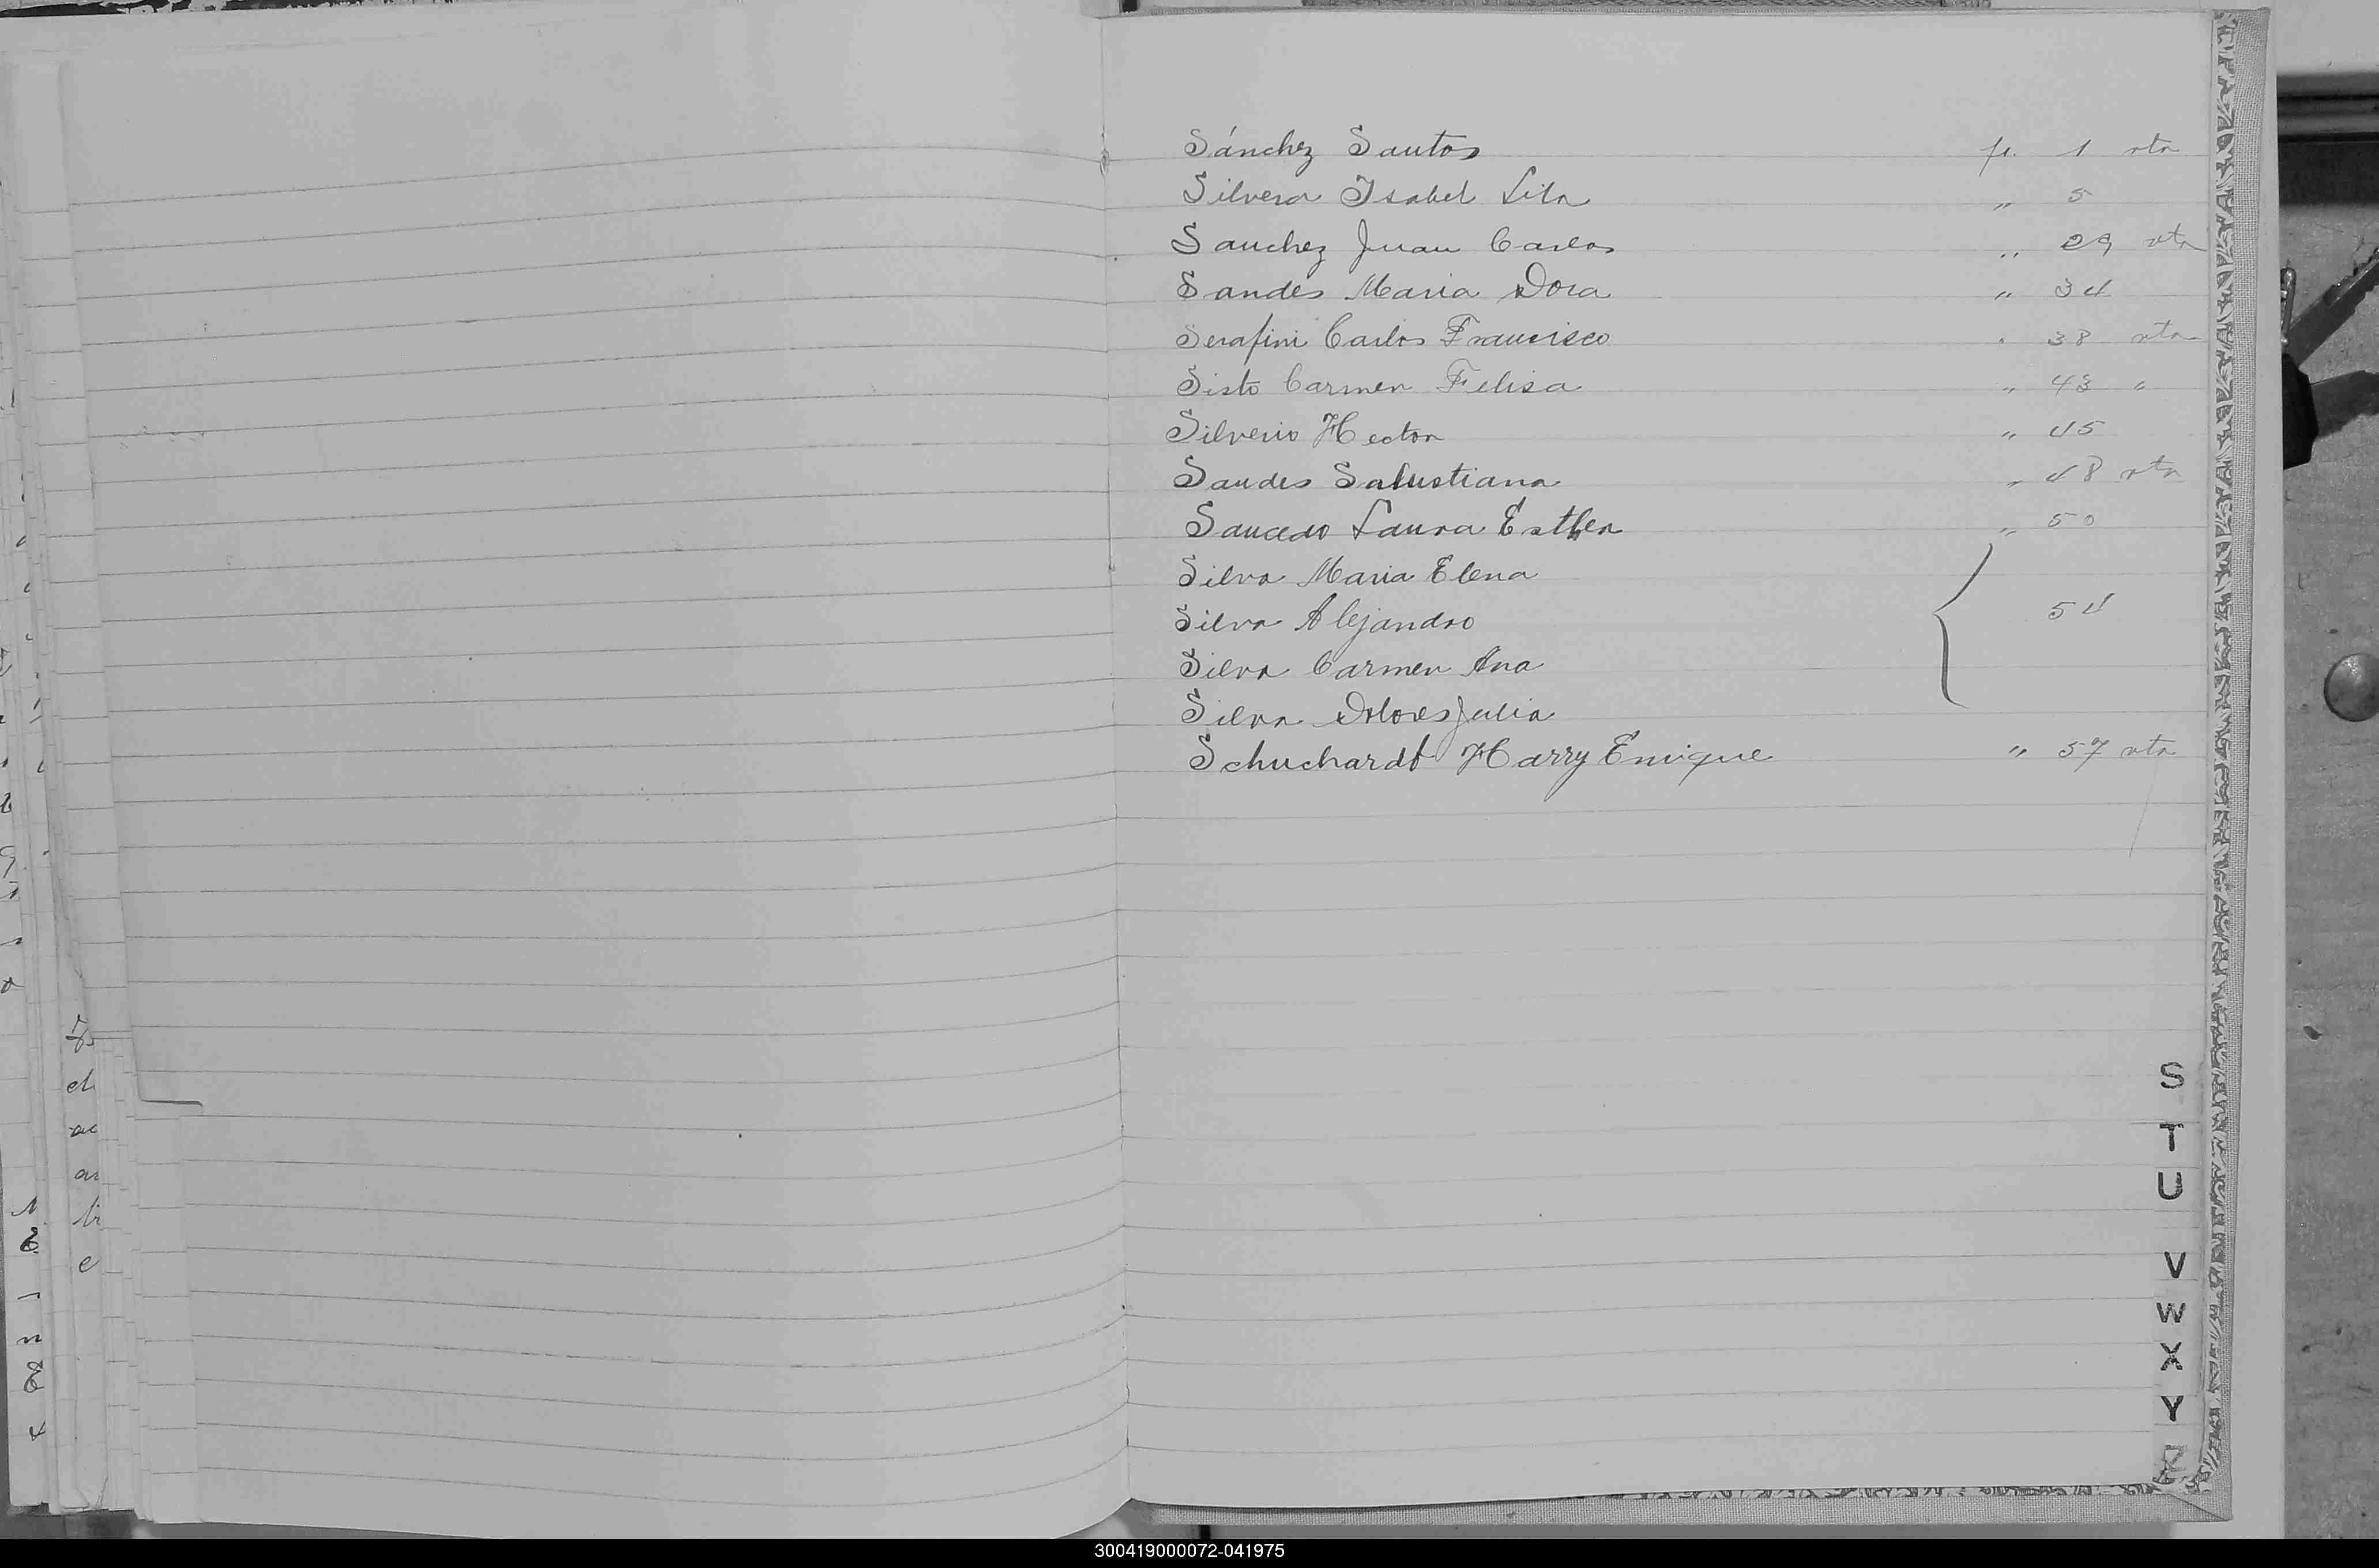 Sánchez Santos fs. 1 vta
Silvera Isabel Lila " 5
Sanchez Juan Carlos " 29 vta
Sandes Maria Dora " 34
Serafini Carlos Francisco " 38 vta
Sisto Carmen Felisa " 43 "
Silverio Hector " 45
Sandes Salustiana " 48 vta
Saucedo Laura Esther " 50
Silva Maria Elena
Silva Alejandro 54
Silva Carmen Ana
Silva Dolores Julia
Schuchardt Harry Enrique " 57 vta
S
T
U
V
W
X
Y
Z
300419000072-041975